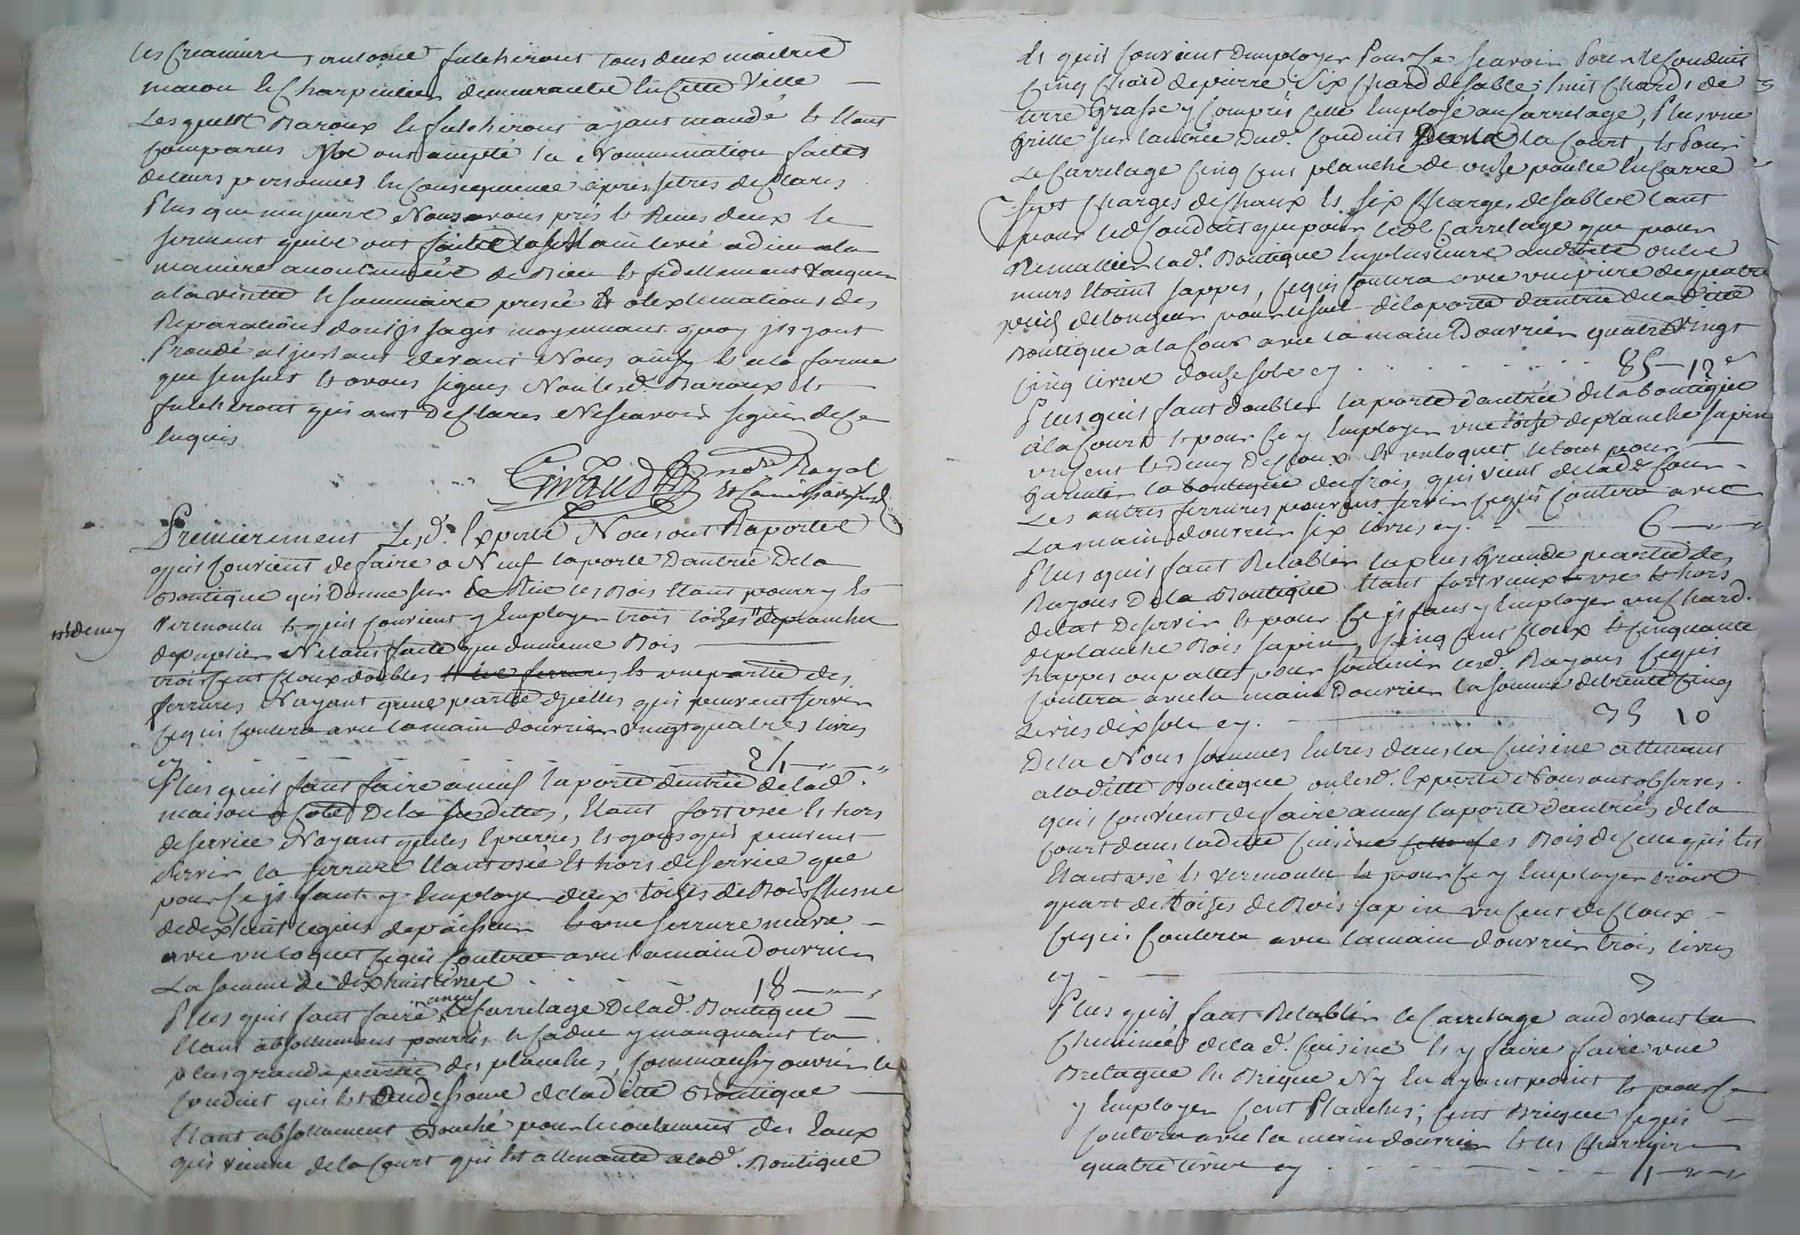 tous deux maitres
macon & Charpentier demeurants en cette Ville
Lesquels Baroux & fulchiront ayant mandé & étant
comparus Nous ont accepté la Nomination faite
de leurs personnes En Consequence apres s'etres declarés
Plus que majeurs Nous avons pris & Reçu deux le
serment qu'ils ont la main levée a dieu a la
maniere accoutumée de Bien & fidellement vaquer
a la visitte & sommaire & a lextimations des
Reparations dont s'agit moyennant quoy
Procedé devant Nous ainsy & a la forme
que s'ensuit & avons signes Non lesd. Baroux &
fulchiront qui ont Declarés Ne scavoir signer de ce
Enquis
Giraud no.re Royal
Premierement Lesd. Experts Nous ont Raportes
quil Convient de faire a Neuf la porte Dantrée De la
Boutique qui Donne sur la Rue les Bois Etant pourry &
Vermoulu & quil convient y Employer trois toizes " de planches
& demy
de Netant faite que du meme Bois
trois cent Cloux doubles & une partie des
ferrures N'ayant qu'une partie d'ielles qui peuvent servir
ce qui Coutera avec la main douvrier vingt quatres livres
cy 24
Plus quil faut faire a neuf la porte dentrée de lad.
maison a Coté De la , Etant fort usée & hors
de service N'ayant que les & gons qui peuvent
servir la serrure Etant usée & hors de service que
pour ce il faut y Employer deux toizes de Bois Chesne
de dixhuit lignes depaisseur & une serrure
avec un loquet ce qui Coutera avec la main Douvrier
La somme de dix huit livres 18
Plus quil faut faire a neuf le Carrelage De lad. Boutique
Etant absollument pourris & y manquant la
plus grande partie des planches, Comme aussy ouvrir le
Conduit qui est au dessous de ladite Boutique
Etant absollument Bouché pour lecoulement des Eaux
qui vienne de la Court qui est attenante a lad. Boutique
& quil Convient Demployer Pour ce scavoir Pour le Conduit
Cinq Chard de pierre, six Chard de sable huit Chards de
terre Grasse y Compris celle Employé au Carrelage, Plus une
Grille sur lantrée Dud. Conduit la Court, & Pour
Le Carrelage Cinq cent planches de onze pouces En Carré
sept Charges de chaux & six Charges de sable tant
pour led. Conduit que pour led. Carrelage que pour
Remailler lad. Boutique En plusieurs androits ou les
murs Etoient sappes, ce qui Coutera avec une pierre de quatre
pieds de longueur pour le seuil de la porte dantrée de laditte
Boutique a la Cour avec la main Douvrier quatre Vingt
Cinq livres douze sols cy 85 - 12
Plus quil faut doubler la porte dantrée de la boutique
a la Court & pour ce y Employer une toize de planche sapin
un cent & demy De Cloux & un loquet, le tout pour
Garentir la boutique du frois qui vient de lad. Cour
Les autres ferrures pouvant servir ce qui Coutera avec
La main douvrier six livres cy 6
Plus quil faut Retablir la plus Grande partie des
Rayons De la Boutique Etant fort vieux usé & hors
detat De servir & pour ce il faut y Employer un Chard
de planche Bois sapin, Cinq cent Cloux & Cinquante
happes ou pattes pour soutenir lesd. Rayons ce qui
Coutera avec la main Douvrier la somme de trente Cinq
Livres dix sols cy 35 10
De la Nous sommes Entres dans la Cuisine attenant
a laditte Boutique, ou lesd. Experts Nous ont observes
quil Convient de faire a neuf la porte dantrées de la
Court dans laditte Cuisine les Bois de Celle qui est
Etant usé & vermoulu & pour ce y Employer trois
quart de toizes de Bois sapin un Cent de Cloux
ce qui Coutera avec la main douvrier trois livres
cy 3
Plus quil faut Retablir le Carrelage au devant la
Cheminée de lad. Cuisine & y faire faire une
Bretagne En Brique N'y En ayant point & pour ce
y Employer Cent Planches, Cent Brique ce qui
Coutera avec la main douvrier & les
quatre livres cy 4